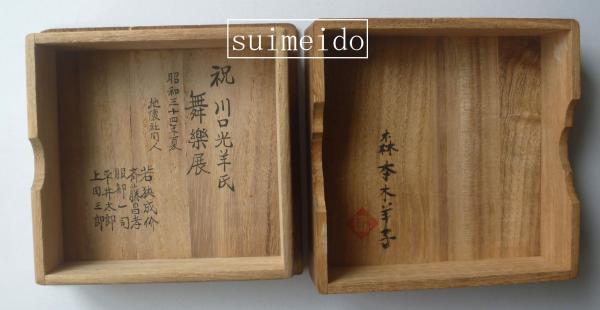 suimeido
祝 川口光羊氏
舞樂展
昭和三十四年夏
地陵社同人
若狭成价
斉藤昌孝
服部一司
平井太郎
上田三郎
森本木羊子